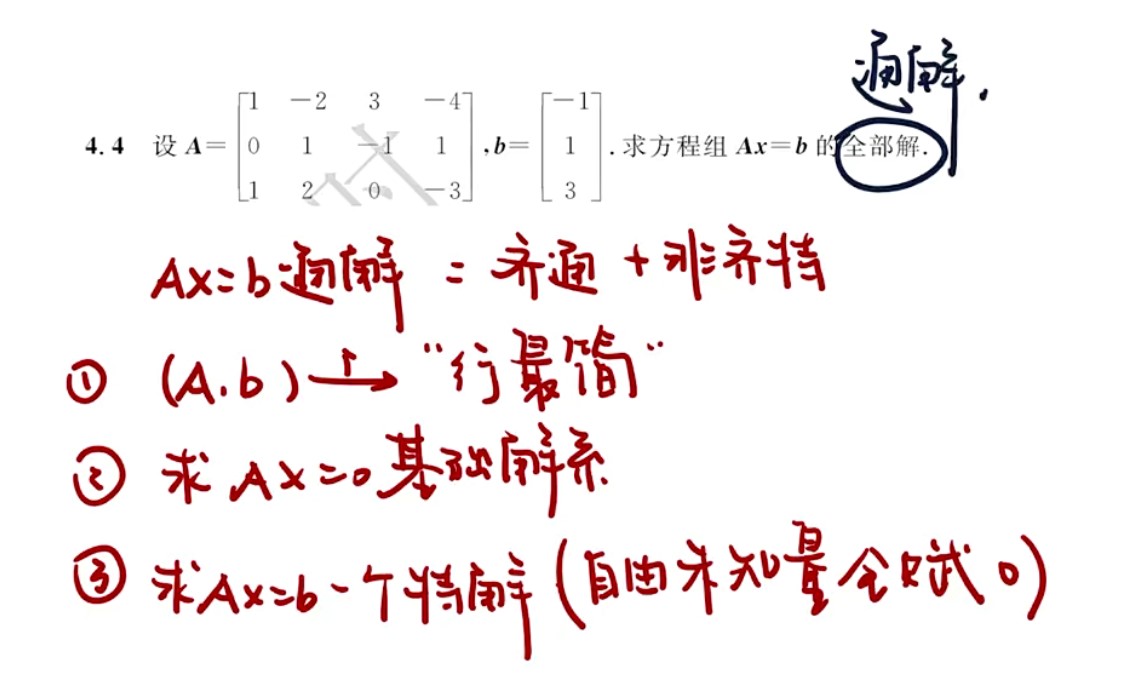 通解.
4.4 设 A=[1 -2 3 -4; 0 1 -1 1; 1 2 0 -3], b=[-1; 1; 3]. 求方程组 Ax=b 的全部解.
Ax=b 通解 = 齐通 + 非齐特
① (A,b) r→ "行最简"
② 求 Ax=0 基础解系
③ 求 Ax=b 一个特解 (自由未知量全赋 0)